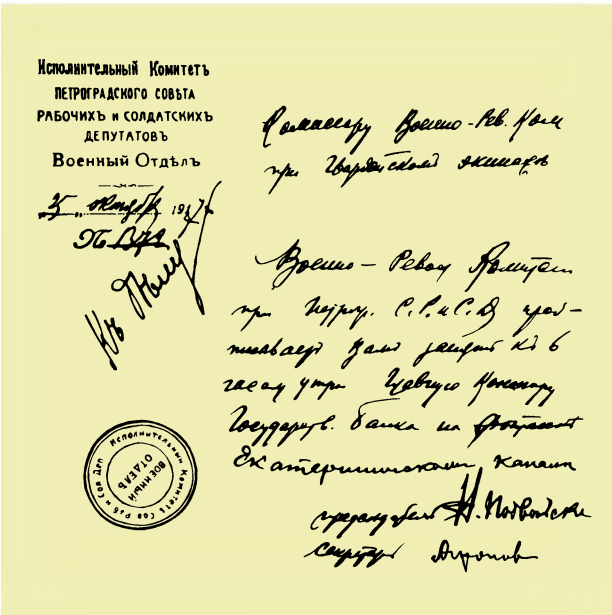 Исполнительный Комитетъ
ПЕТРОГРАДСКОГО СОВѢТА
РАБОЧИХЪ И СОЛДАТСКИХЪ
ДЕПУТАТОВЪ
Военный Отдѣлъ
25 октября 1917 г.
№
Комиссару Военно-Рев. Ком
при Гвардейском экипаже
Военно-Револ Комитет
при Петрогр. С.Р. и С.Д пред-
писывает Вам занять къ 6
часам утра Главную Контору
Государств. банка на
Екатерининском канале
председатель Н. Подвойский
секретарь
Исполнительный Комитетъ Сов Раб и Сол Деп
ВОЕННЫЙ
ОТДѢЛЪ